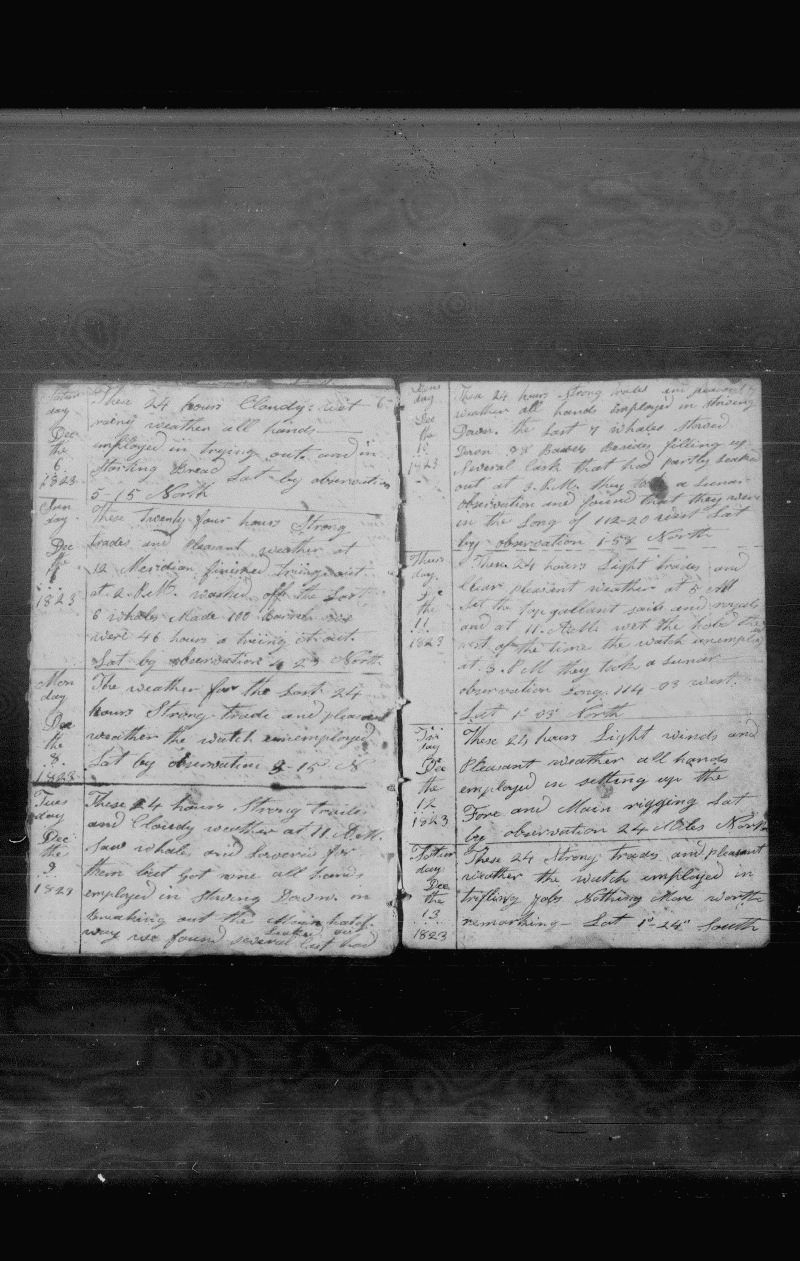 Satur
day
Dec
the
6
1823
These 24 hours Cloudy wet
rainy weather all hands
employed in trying out and in
Starting Bread Lat by observation
5-15 North
Sun
day
Dec
the
7
1823
These Twenty four hours Strong
trades and Pleasant weather at
12 Meridian finished trying out
at 2 P.M. washed off the Last
6 whales Made 100 Barrels
were 46 hours a trying
Lat by observation 4 23 North
Mon
day
Dec
the
8
1823
The weather for the Last 24
hours Strong trade and pleasant
weather the watch unemployed
Lat by observation 3-15 N
Tues
day
Dec
the
9
1823
These 24 hours Strong trades
and Cloudy weather at 11 A.M.
Saw whales and Lowered for
them but got none all hands
employed in Stowing Down in
breaking out the Main hatch
way we found several cask had
Leaked out
day
Dec
the
10
1823
These 24 hours Strong trades and pleasant
weather all hands Employed in Stowing
Down the Last 7 whales Stowed
Down 98 Barrels Besides filling up
Several cask that had partly Leaked
out at 3 P.M. they took a Lunar
observation and found that they were
in the Long of 112-20 west Lat
by observation 1-58 North
Thurs
day
the
11
1823
These 24 hours Light trades and
Clear pleasant weather at 5 AM
Set the top gallant sails and royals
and at 11 A.M. wet the hold the
rest of the time the watch
at 3 P M they took a Lunar
observation Long 114-03 west
Lat 1° 03" North
Fri
day
Dec
the
12
1823
These 24 hours Light winds and
Pleasant weather all hands
employed in setting up the
Fore and Main rigging Lat
by observation 24 Miles North
Satur
day
Dec
the
13
1823
These 24 Strong trades and pleasant
weather the watch employed in
trifling Jobs Nothing More worth
remarking - Lat 1°-24" South